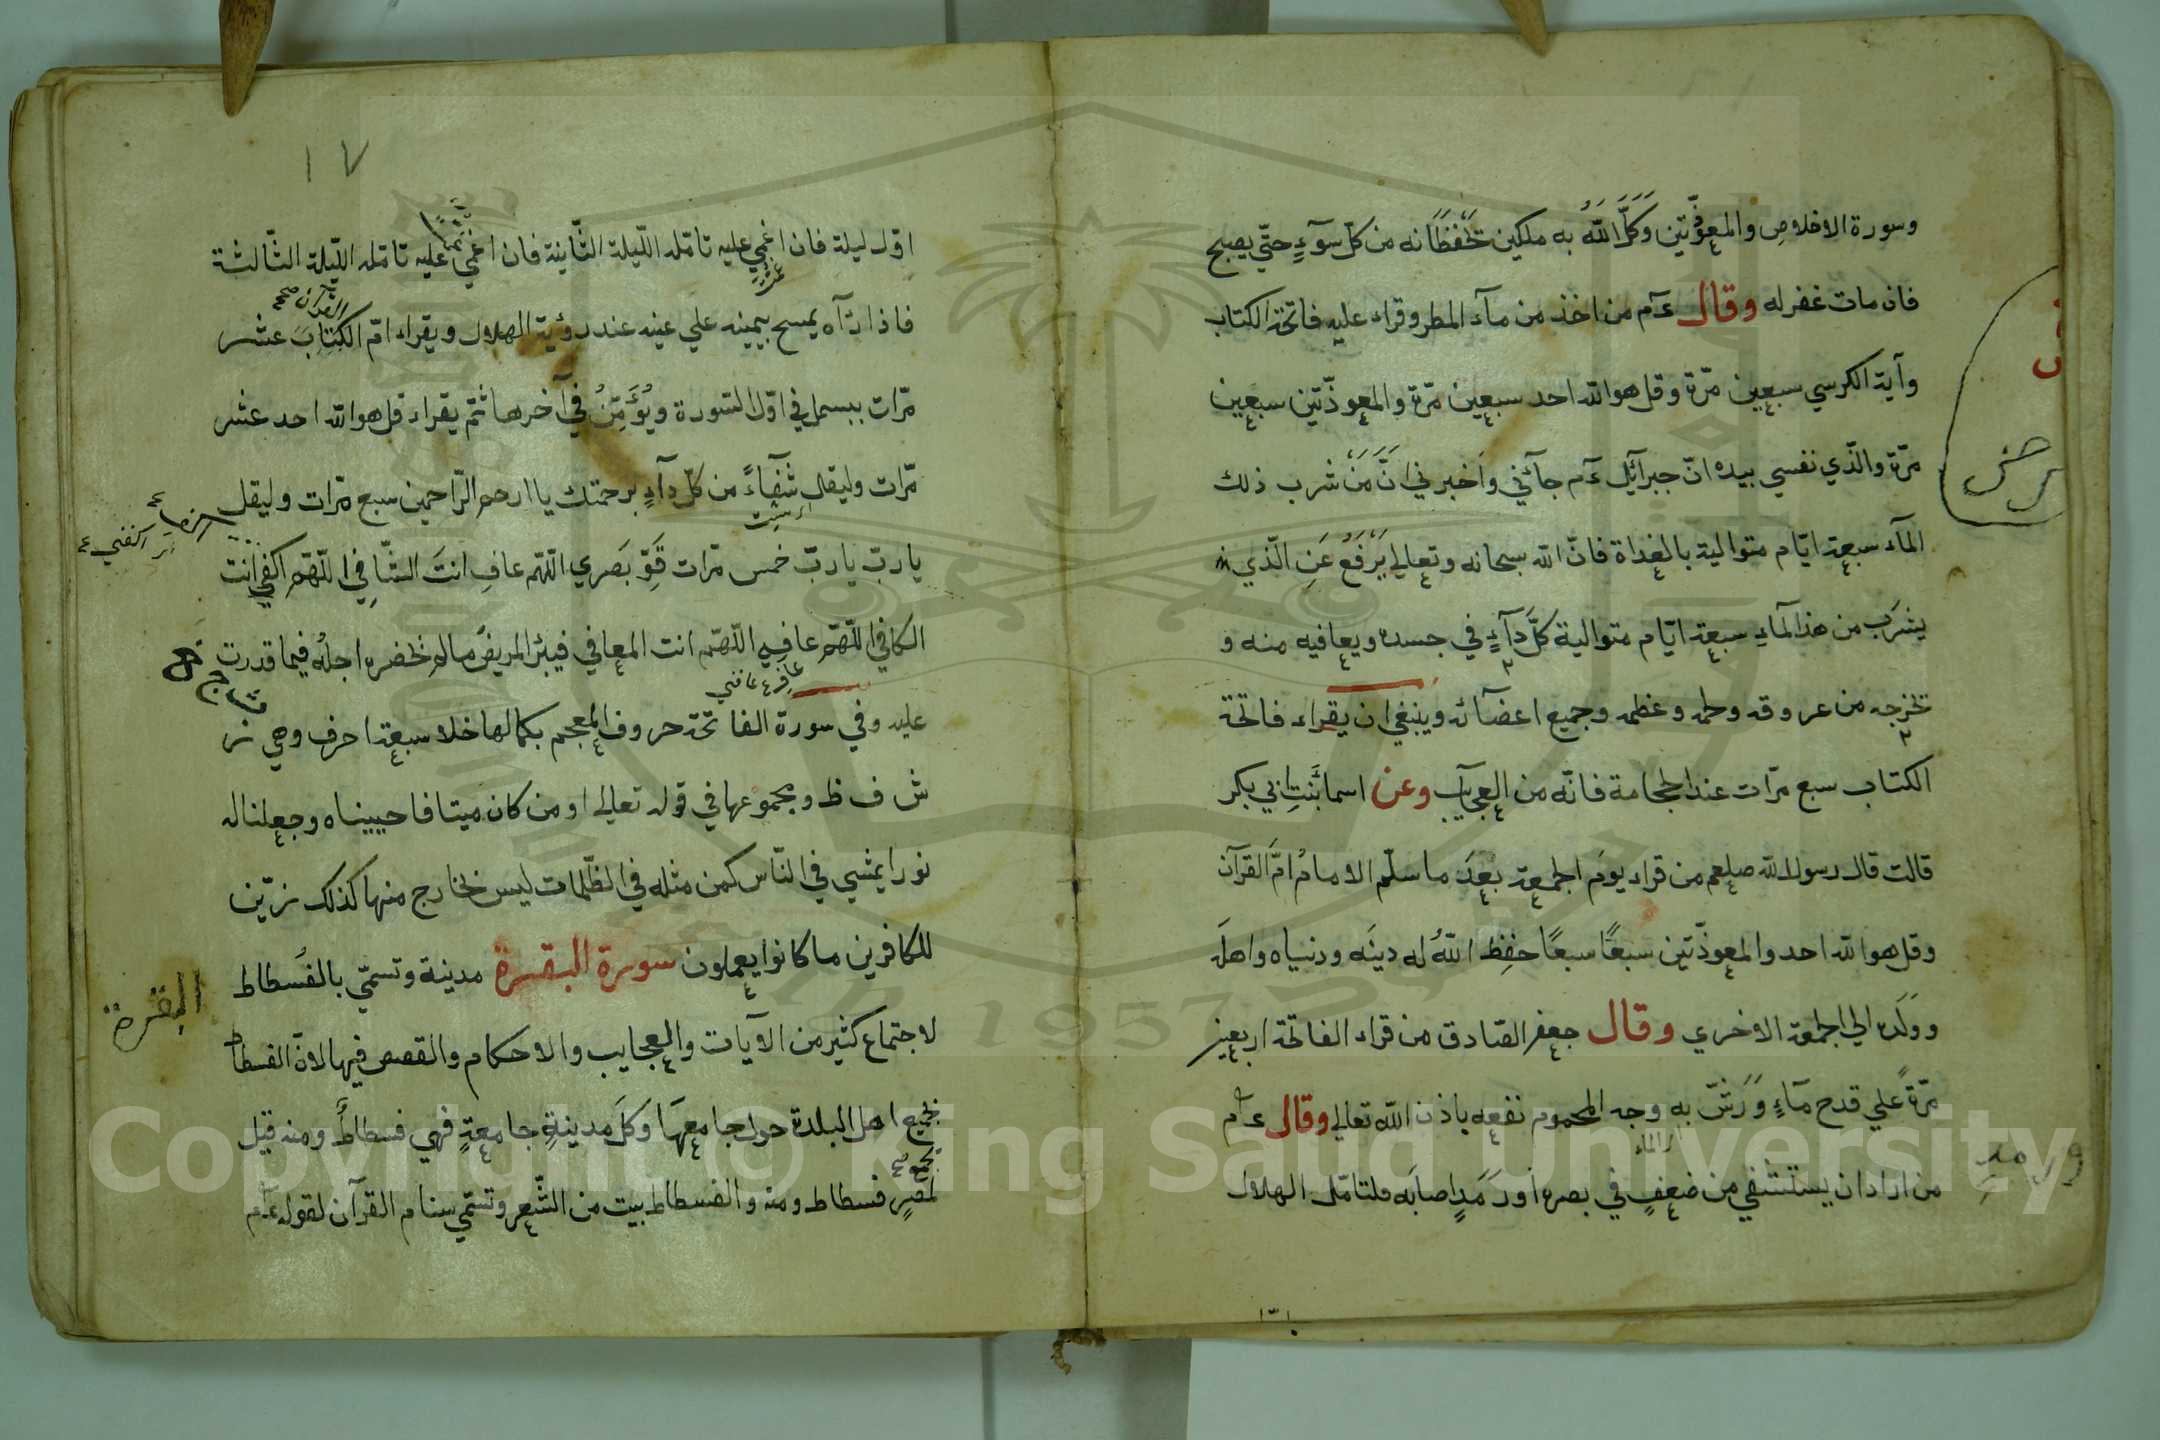 وسورة الاخلاص والمعوّذتين وَكَّلَ اللّٰهُ به ملكين تحفظانه من كلّ سوءٍ حتّي يصبح
فان مات غفر له وقال ءم من اخذ من مآء المطر وقراء عليه فاتحة الكتاب
وآية الكرسي سبعين مرّة وقل هو الله احد سبعين مرّة والمعوذّتين سبعين
مرّة والّذي نفسي بيده انّ جبرآئيل ءم جآئني وَاخبرني اَنَّ مَنْ شرب ذلك
المآء سبعة ايّام متوالية بالغداة فانّ الله سبحانه وتعالي يَرْفَعُ عَنِ الّذي
يشرَب من هذا المآءِ سبعة ايّام متوالية كلَّ دآءٍ في جسده ويعافيه منه و
تخرجه من عروقه ولحمه وعظمه وجميع اعضآئه وينبغي ان يقراء فاتحة
الكتاب سبع مرّات عند الحجامة فانّه من العجآيب وعن اسما بَنتِ ابي بكر
قالت قال رسول الله صلعم من قراء يومَ الجمعة بعدَ ما سلّم الامامُ امَّ القرآن
وقل هو الله احد والمعوذّتين سبعًا سبعًا حفِظ اللّٰهُ له دينَه ودنياه واهلَه
ووَلَده الي الجمعة الاخري وقال جعفر الصّادق من قراء الفاتحة اربعين
مرّةً علي قدح مآءٍ وَرَشّ به وجه المحموم نفعه باذن الله تعالي وقال ءم
اي الماء
من اراد ان يستشفي من ضعفٍ في بصره اَو رَمَدٍ اصابَه فلتامّل الهلال
اوّل ليلة فان اغمي عليه تامّله اللّيلة الثّانية فان اغمي عليه تامله اللّيلة الثّالثة
فاذا رَآه يمسح بيمينه علي عينه عند رؤية الهلال ويقراء امّ الكِتابَ عشر
القرآن صح
مرّات ببسمل في اوّل السّورة ويُؤَمِّنُ في آخرها ثمّ يقراء قل هو الله احد عشر
مرّات وليقل شفآءً من كلّ دآءٍ برحمتك يا ارحم الرّاحمين سبع مرّات وليقل
يا ربّ يا ربّ خمس مرّات قَوِّ بَصَري اللّهم عافِ انتَ الشّافِي اللّهم اكفِ انت
اكفني
الكافي اللّهم عافِهِ اللّهمّ انت المعافي فيبرَئ المريض ما لم يحضره اجلُه فيما قدرت
عافني
عليه وفي سورة الفاتحة حروف المعجم بكمالها خلا سبعة احرف وهي ز
ش ف ظ ومجموعها في قوله تعالي او من كان ميتا فاحييناه وجعلنا له
نورا يمشي في النّاس كمن مثله في الظّلمات ليس بخارج منها كذلك زيّن
للكافرين ما كانوا يعملون سورة البقرة مدينة وتسمّي بالفُسطاط
البقرة
لاجتماع كثير من الآيات والعجايب والاحكام والقصص فيها لانّ الفسطاط
بجميع اهل البلدة حول جامعهَا وكلّ مدينةٍ جامعةٍ فهي فسطاطٌ ومنه قيل
لمصرٍ فسطاط ومنه والفسطاط بيت من الشّعر وتسمّي سنام القرآن لقوله ءم
١٧